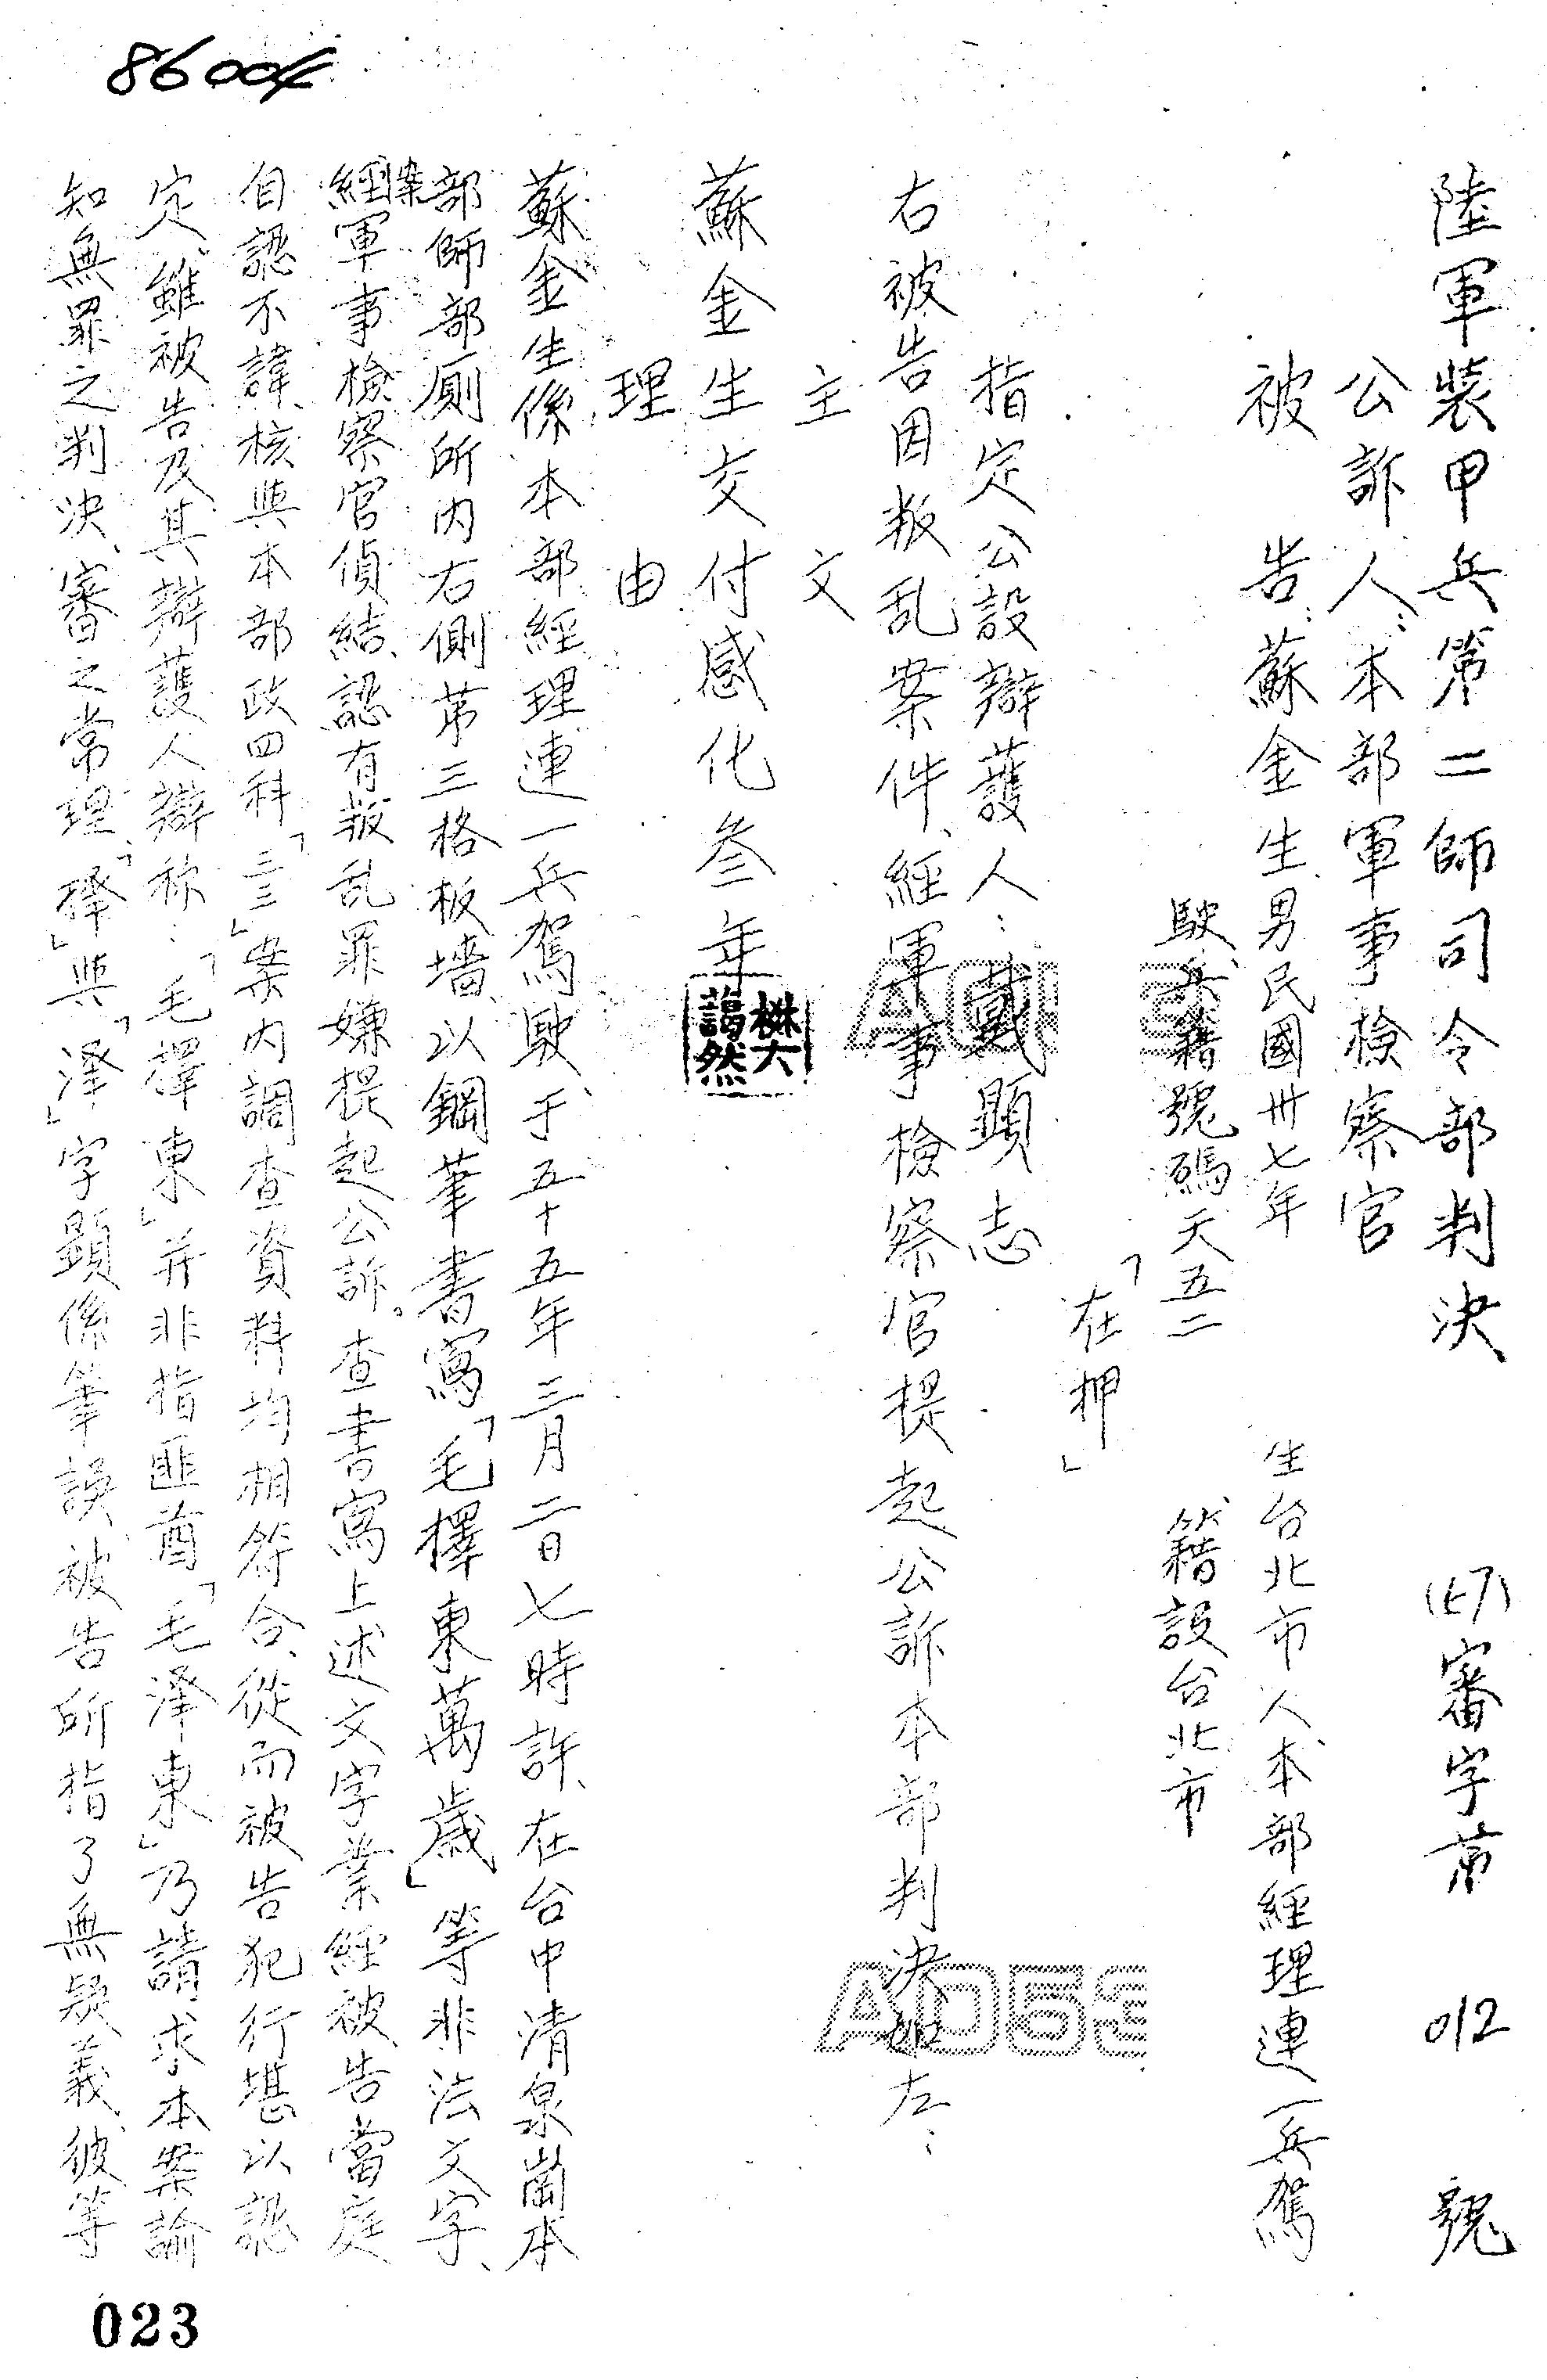 86004
陸軍裝甲兵第二師司令部判決
審字第 012 號
公訴人：本部軍事檢察官
被告：蘇金生男民國卅七年生台北市人本部經理連一兵駕
駛兵籍號碼天五二
籍設台北市
「在押」
指定公設辯護人：戴顯志
右被告因叛乱案件、經軍事檢察官提起公訴本部判決如左：
主文
蘇金生交付感化叁年
樊藹然
理由
蘇金生係本部經理連一兵駕駛、于五十五年三月二日七時許、在台中清泉崗本
部師部廁所內右側第三格板墻、以鋼筆書寫「毛擇東萬歲」等非法文字、
案經軍事檢察官偵結、認有叛乱罪嫌提起公訴。查書寫上述文字業經被告當庭
自認不諱、核與本部政四科「三三」案內調查資料均相符合、從而被告犯行堪以認
定、雖被告及其辯護人辯称：「毛擇東」并非指匪酋「毛泽東」乃請求本案諭
知無罪之判決、審之常理、「擇」與「泽」字顯係筆誤、被告所指了無疑義、彼等
023